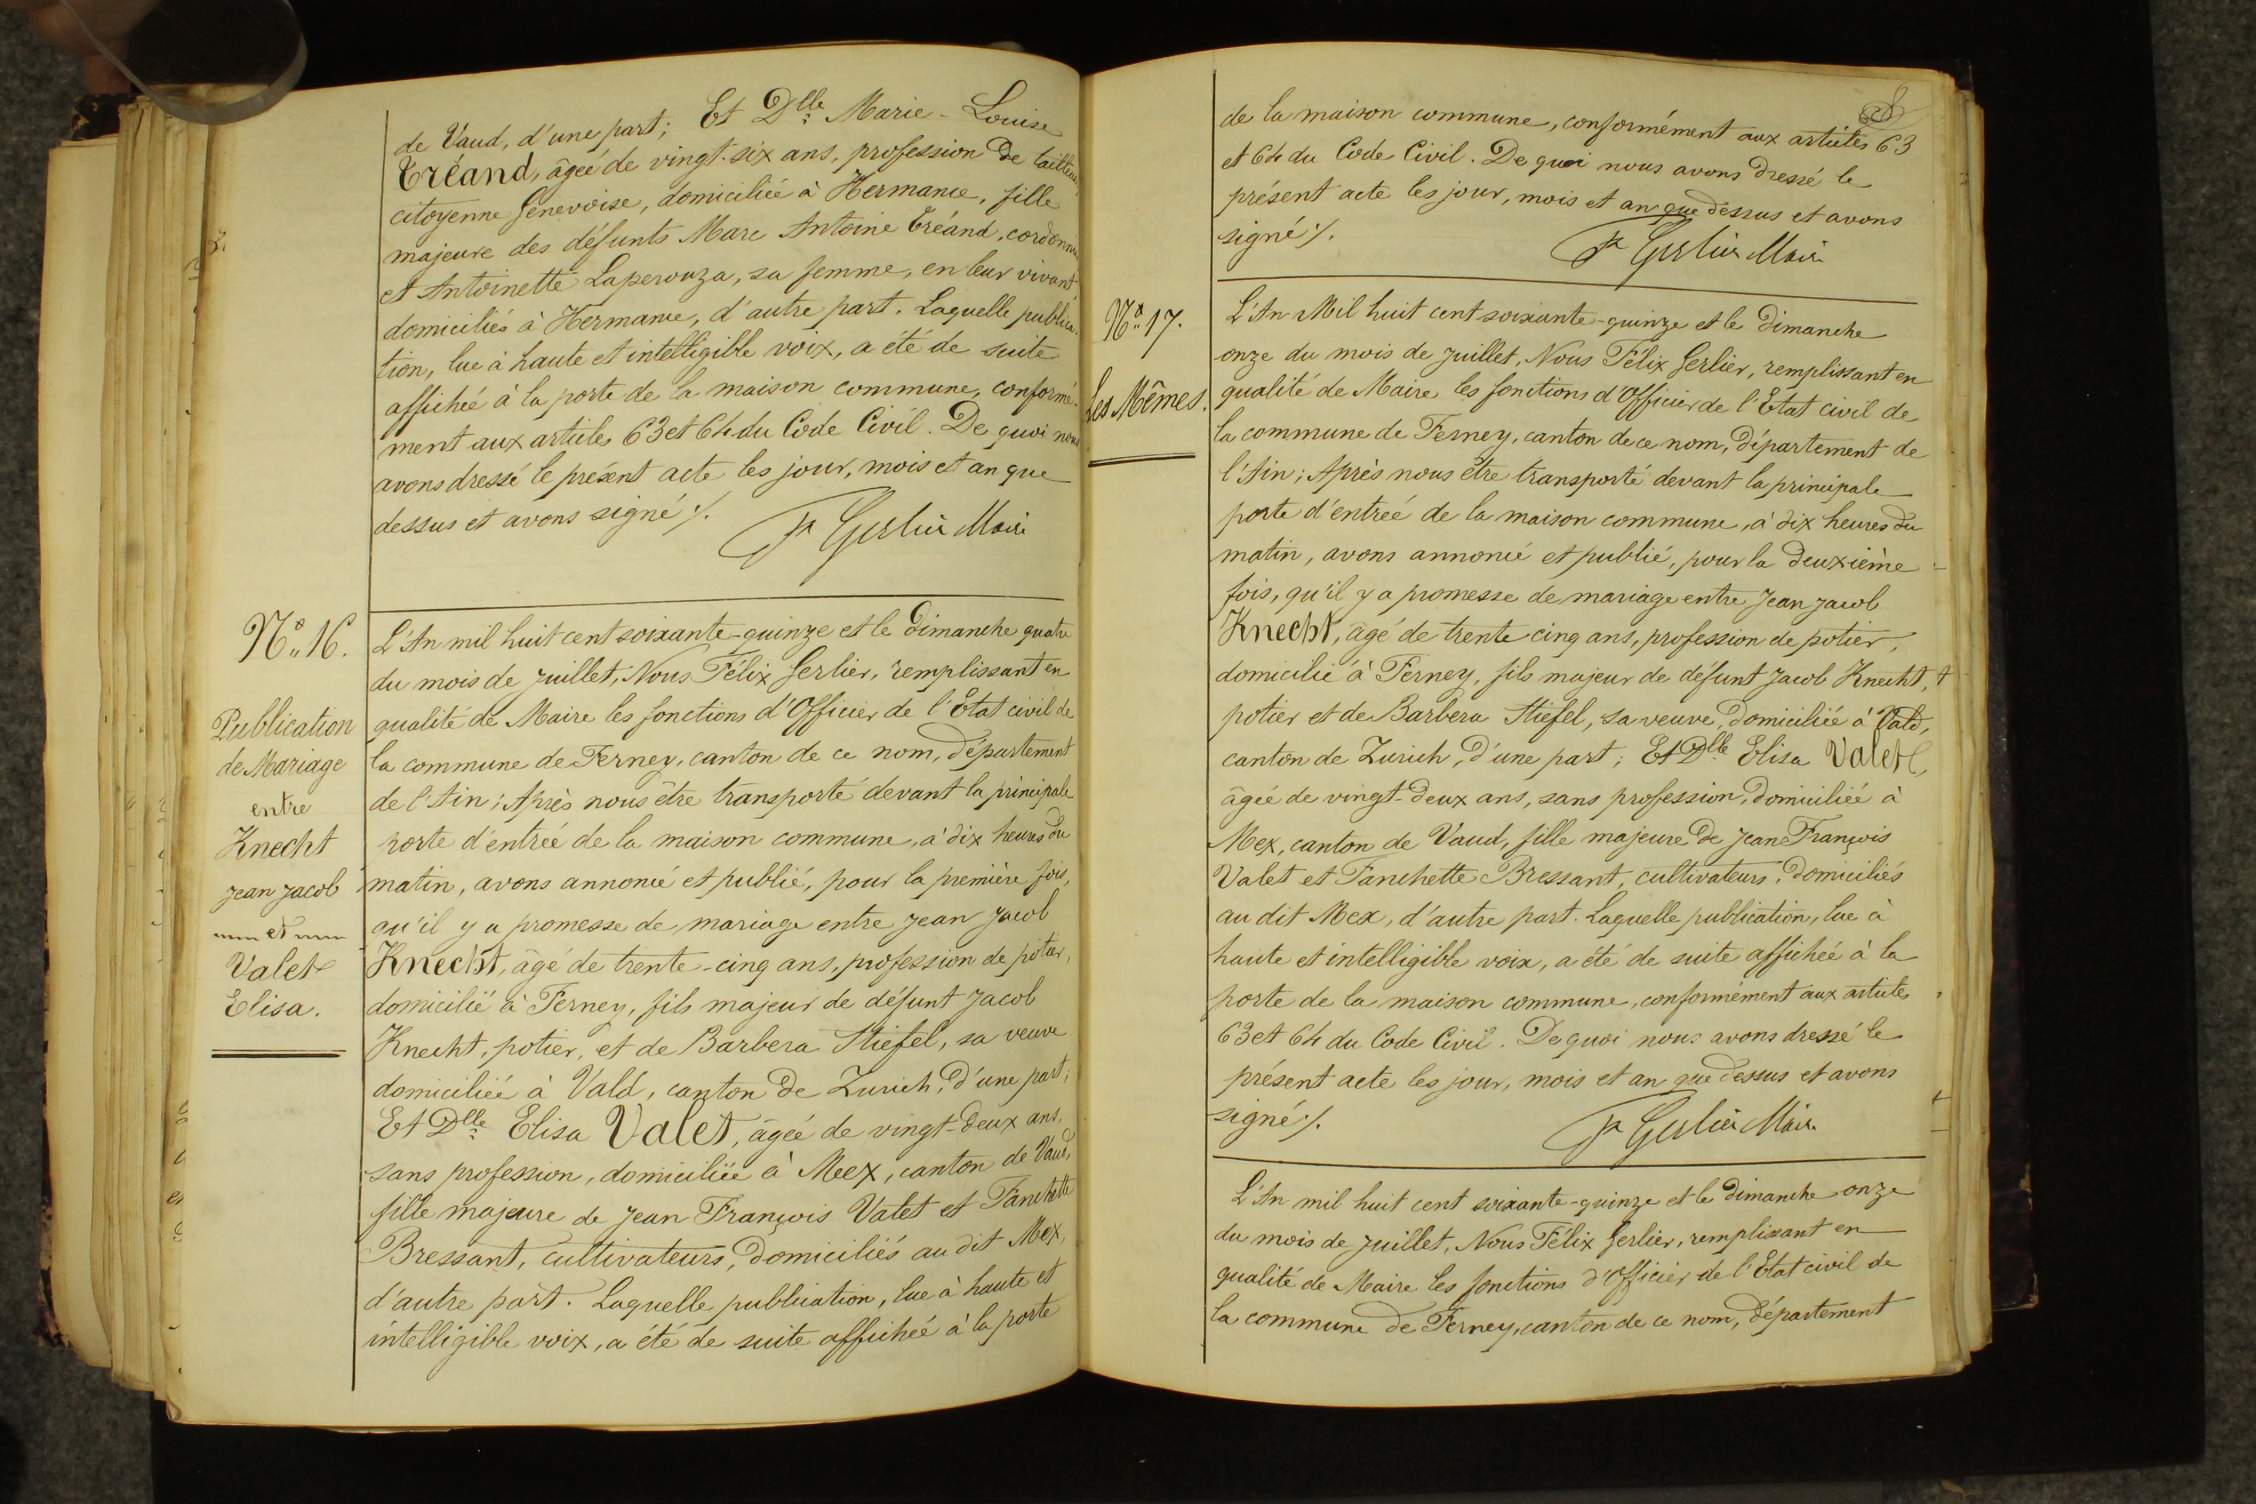 de Vaud, d'une part; Et Dlle Marie-Louise
Tréand, âgée de vingt-six ans, profession de tailleuse,
citoyenne Genevoise, domiciliée à Hermance, fille
majeure des défunts Marc Antoine Tréand, cordonnier
et Antoinette Laperouza, sa femme, en leur vivant
domiciliés à Hermance, d'autre part. Laquelle publica-
tion, lue à haute et intelligible voix, a été de suite
affichée à la porte de la maison commune, conformé-
ment aux articles 63 et 64 du Code Civil. De quoi nous
avons dressé le présent acte les jour, mois et an que
dessus et avons signé ./.
Fx Gerlier Maire
No 16.
Publication
de Mariage
entre
Knecht
Jean Jacob
et
Valet
Elisa.
L'An mil huit cent soixante-quinze et le dimanche quatre
du mois de juillet, Nous Félix Gerlier, remplissant en
qualité de Maire les fonctions d'Officier de l'Etat civil de
la commune de Ferney, canton de ce nom, département
de l'Ain; Après nous être transporté devant la principale
porte d'entrée de la maison commune, à dix heures du
matin, avons annoncé et publié, pour la première fois,
qu'il y a promesse de mariage entre Jean Jacob
Knecht, âgé de trente-cinq ans, profession de potier,
domicilié à Ferney, fils majeur de défunt Jacob
Knecht, potier, et de Barbera Stiefel, sa veuve
domiciliée à Vald, canton de Zurich, d'une part;
Et Dlle Elisa Valet, âgée de vingt-deux ans,
sans profession, domiciliée à Meex, canton de Vaud,
fille majeure de Jean François Valet et Fanchette
Bressant, cultivateurs, domiciliés au dit Mex,
d'autre part. Laquelle publication, lue à haute et
intelligible voix, a été de suite affichée à la porte
de la maison commune, conformément aux articles 63
et 64 du Code Civil. De quoi nous avons dressé le
présent acte les jour, mois et an que dessus et avons
signé ./.
Fx Gerlier Maire
No 17.
Les Mêmes.
L'An Mil huit cent soixante-quinze et le dimanche
onze du mois de juillet, Nous Félix Gerlier, remplissant en
qualité de Maire les fonctions d'Officier de l'Etat civil de
la commune de Ferney, canton de ce nom, département de
l'Ain; Après nous être transporté devant la principale
porte d'entrée de la maison commune, à dix heures du
matin, avons annoncé et publié, pour la deuxième
fois, qu'il y a promesse de mariage entre Jean Jacob
Knecht, âgé de trente cinq ans, profession de potier,
domicilié à Ferney, fils majeur de défunt Jacob Knecht,
potier et de Barbera Stiefel, sa veuve, domiciliée à Vald,
canton de Zurich, d'une part; Et Dlle Elisa Valet,
âgée de vingt-deux ans, sans profession, domiciliée à
Mex, canton de Vaud, fille majeure de Jean François
Valet et Fanchette Bressant, cultivateurs, domiciliés
au dit Mex, d'autre part. Laquelle publication, lue à
haute et intelligible voix, a été de suite affichée à la
porte de la maison commune, conformément aux articles
63 et 64 du Code Civil. De quoi nous avons dressé le
présent acte les jour, mois et an que dessus et avons
signé ./.
Fx Gerlier Maire
L'An mil huit cent soixante-quinze et le dimanche onze
du mois de juillet, Nous Félix Gerlier, remplissant en
qualité de Maire les fonctions d'Officier de l'Etat civil de
la commune de Ferney, canton de ce nom, département